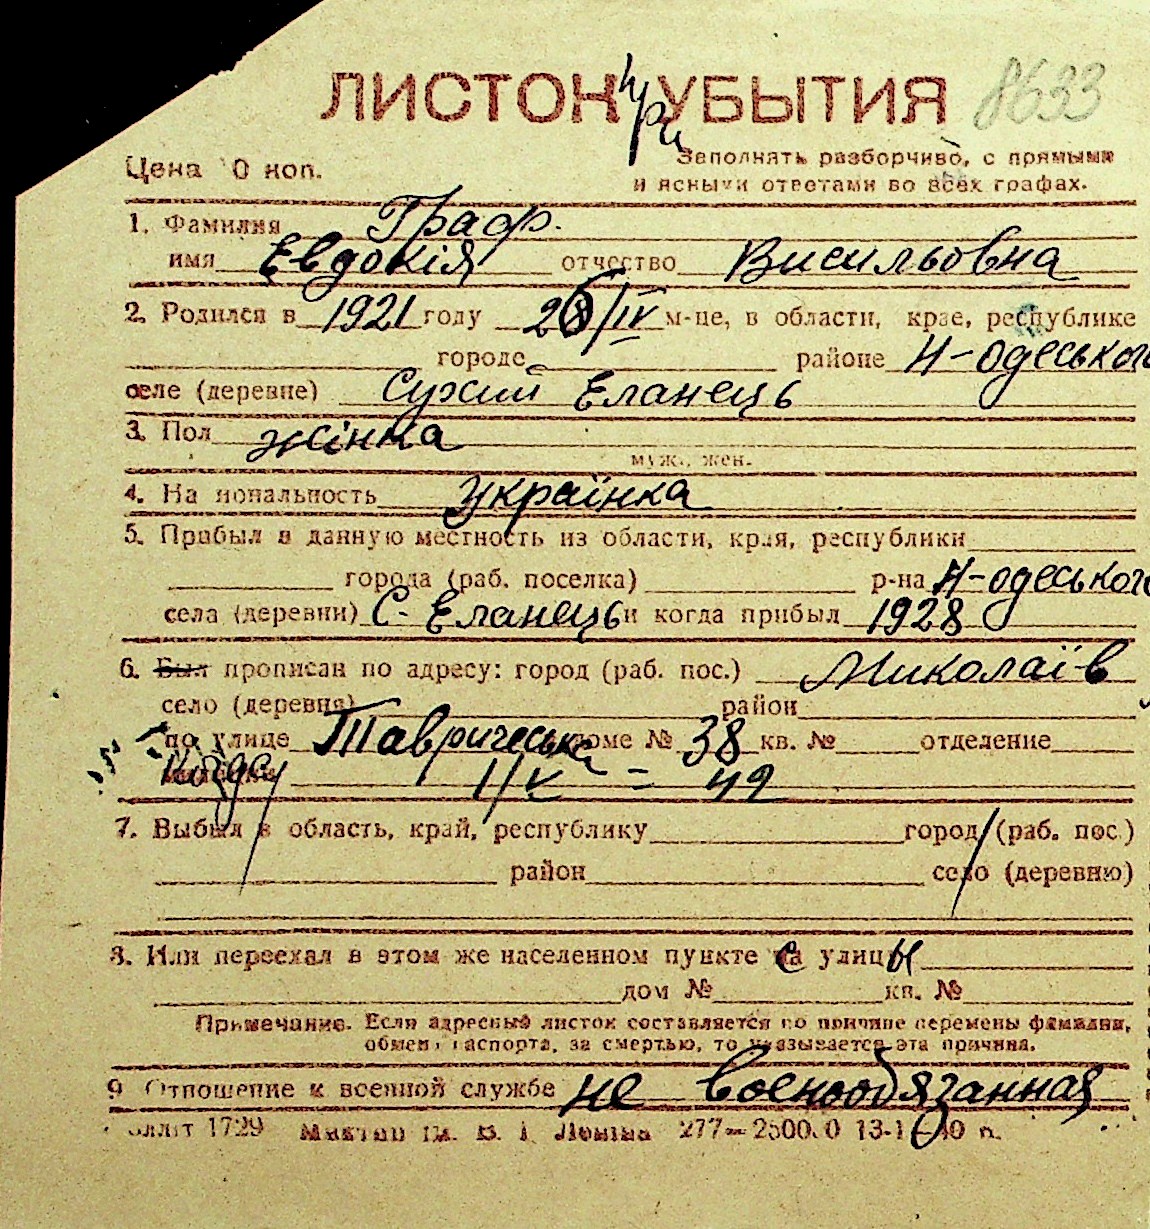 ЛИСТОК УБЫТИЯ при 8633
Цена 0 коп. Заполнять разборчиво, с прямыми
и ясными ответами во всех графах.
1. Фамилия Граф.
имя Евдокія отчество Висильовна
2. Родился в 1921 году 28/IV м-це, в области, крае, республике
городе районе Н-одеського
селе (деревне) Сухий Еланець
3. Пол жінка
муж., жен.
4. На иональность Українка
5. Прибыл в данную местность из области, края, республики
города (раб. поселка) р-на Н-одеського
села (деревни) С-Еланець и когда прибыл 1928
6. Был прописан по адресу: город (раб. пос.) Миколаїв
село (деревня) район
по улице Тавричеська доме № 38 кв. № отделение
Когда 1/V - 42
7. Выбыл в область, край, республику город (раб. пос.)
район село (деревню)
8. Или переехал в этом же населенном пункте с улицы
дом № кв. №
Примечание. Если адресный листок составляется по причине перемены фамилии,
обмена паспорта, за смертью, то указывается эта причина.
9 Отношение к военной службе не военообязанная
1729 277—2500.0